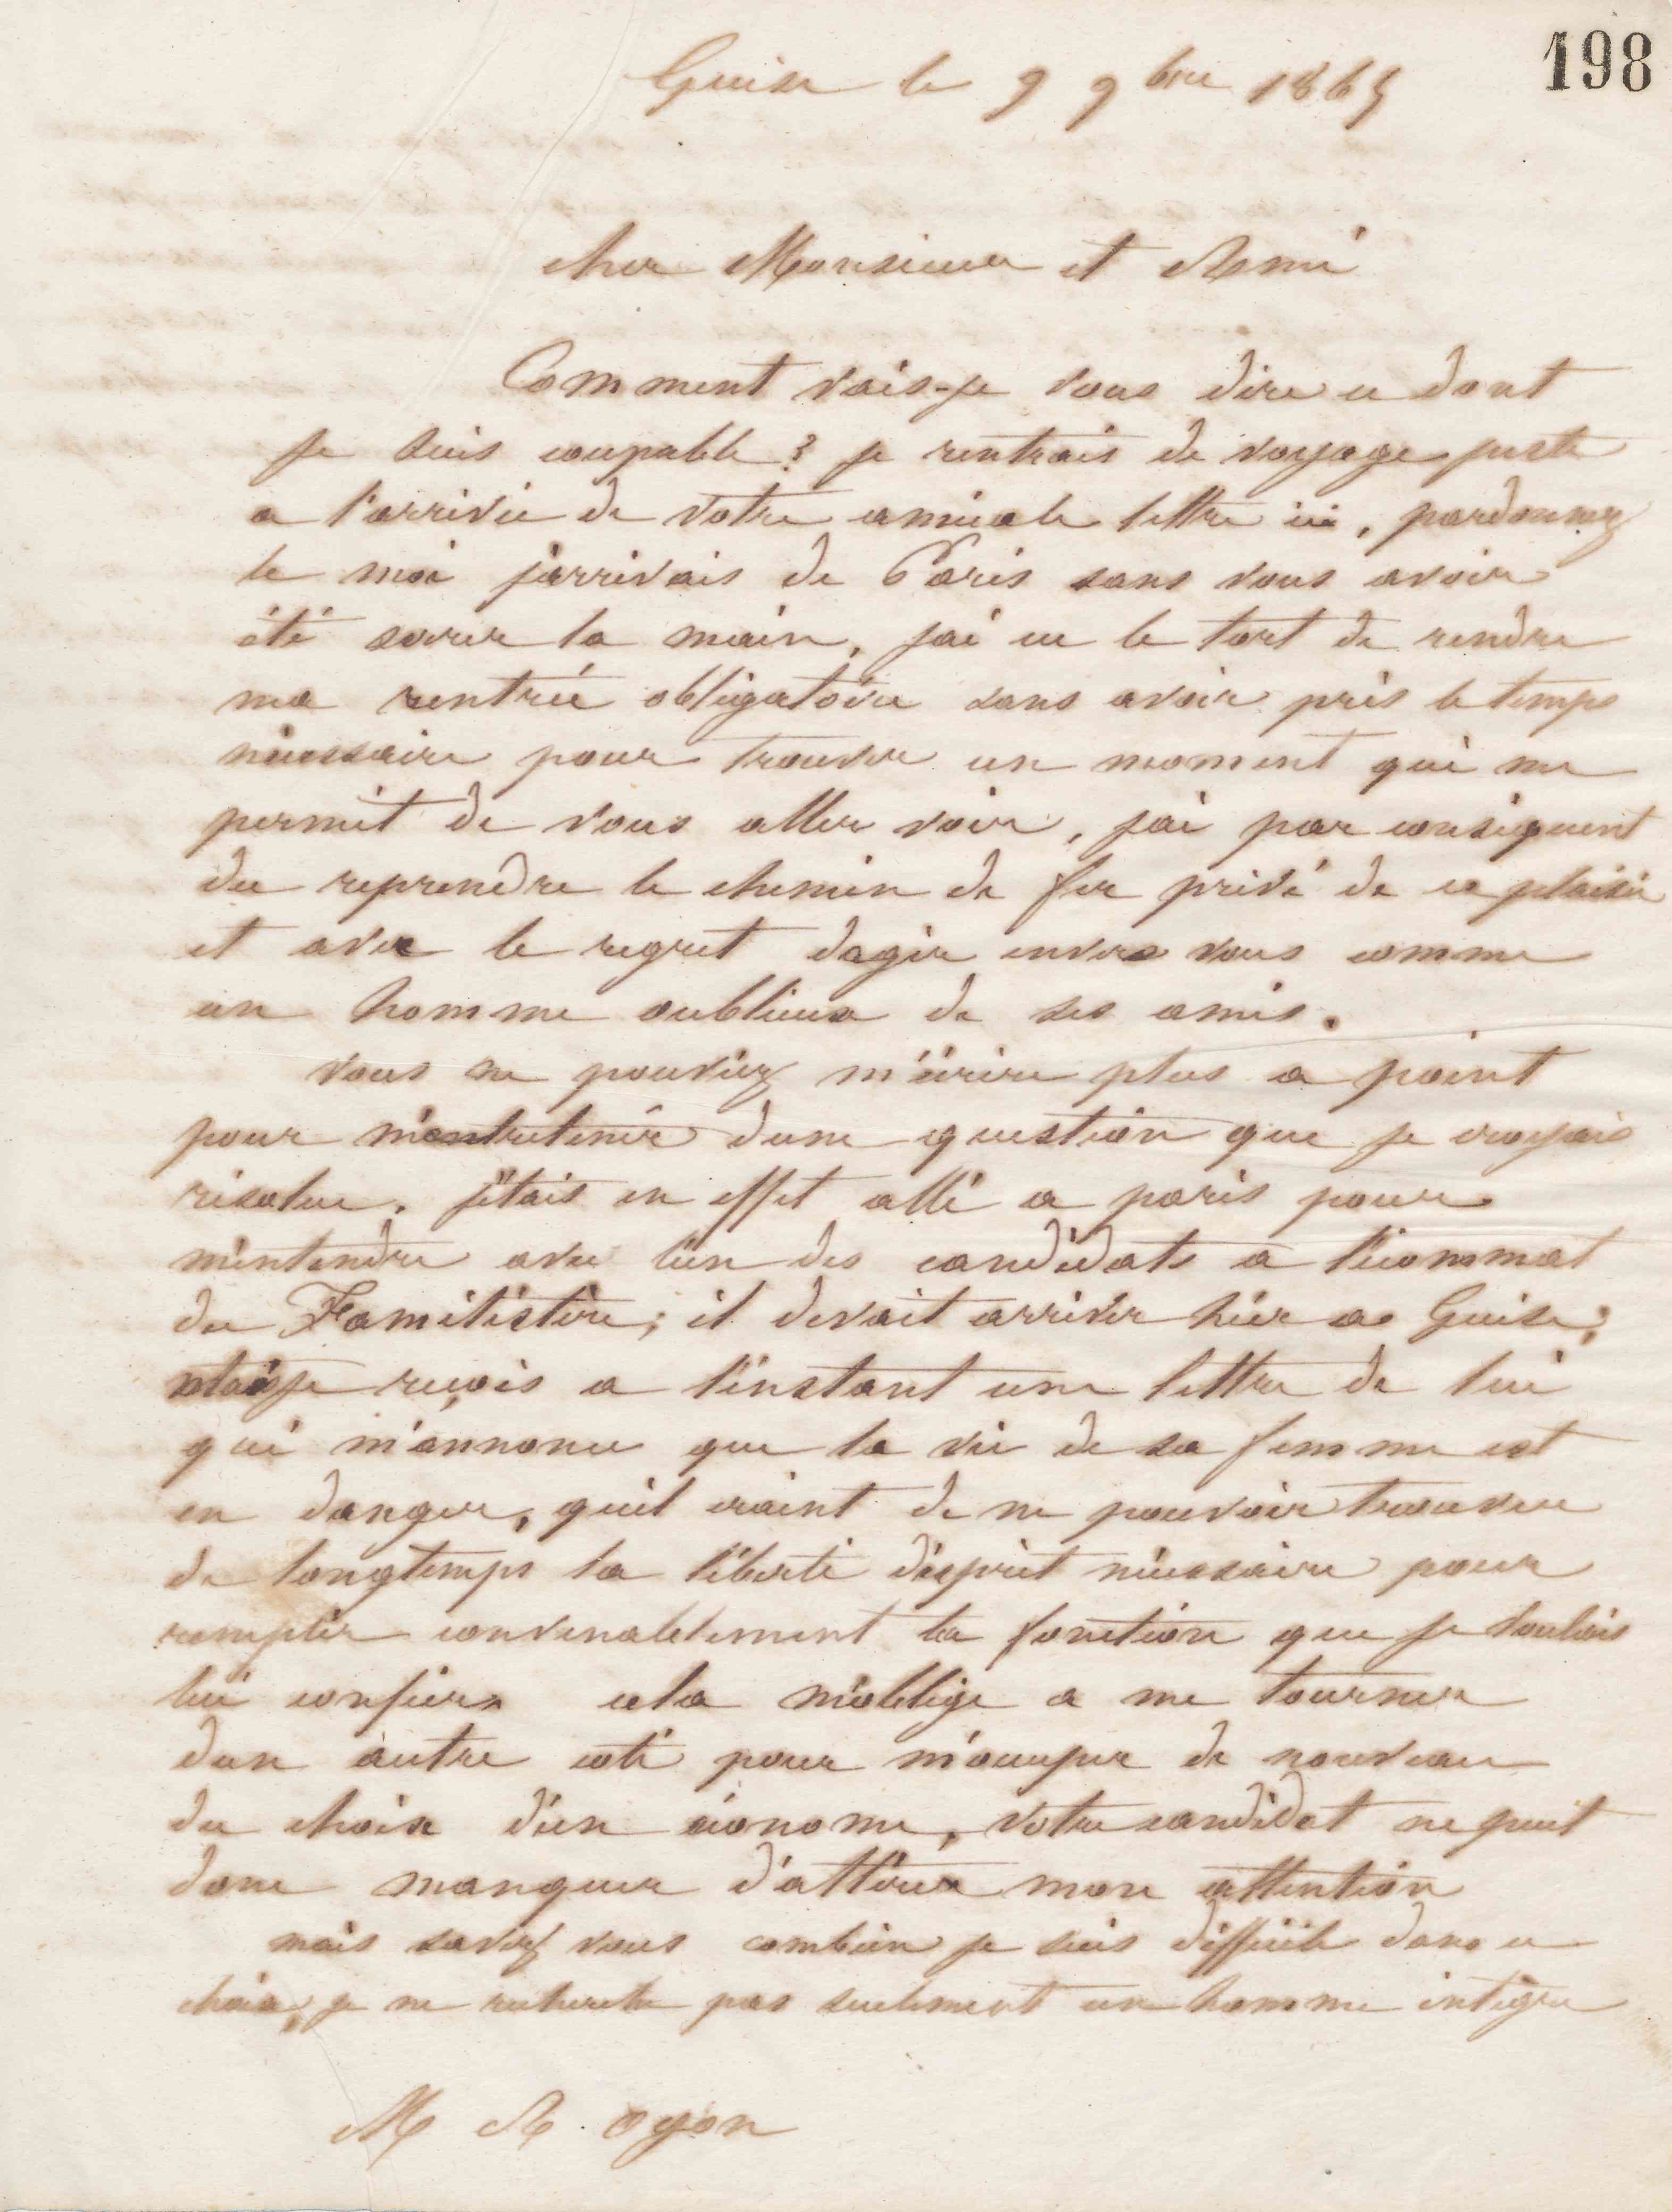 198
Guise le 9 9bre 1865
cher Monsieur et Ami
Comment vais-je vous dire ce dont
je suis coupable? je rentrais de voyage juste
a l'arrivée de votre amicale lettre ici, pardonnez
le moi j'arrivais de Paris sans vous avoir
été serrer la main, j'ai eu le tort de rendre
ma rentrée obligatoire sans avoir pris le temps
nécessaire pour trouver un moment qui me
permit de vous aller voir, j'ai par conséquent
du reprendre le chemin de fer privé de ce plaisir
et avec le regret dagir envers vous comme
un homme oublieux de ses amis.
vous ne pouviez m'écrire plus a point
pour m'entretenir dune question que je croyais
résolue. j'étais en effet allé a paris pour
m'entendre avec l'un des candidats a l'économat
du Familistère; il devait arriver hier a Guise;
mais je reçois a l'instant une lettre de lui
qui m'annonce que la vie de sa femme est
en danger, quil craint de ne pouvoir trouver
de longtemps la liberté d'esprit nécessaire pour
remplir convenablement la fonction que je voulais
lui confier. cela m'oblige a me tourner
dun autre coté pour m'occuper de nouveau
du choix d'un économe, votre candidat ne peut
donc manquer d'attirer mon attention
mais savez vous combien je suis difficile dans ce
choix, je ne recherche pas seulement un homme intègre
M A. oyon